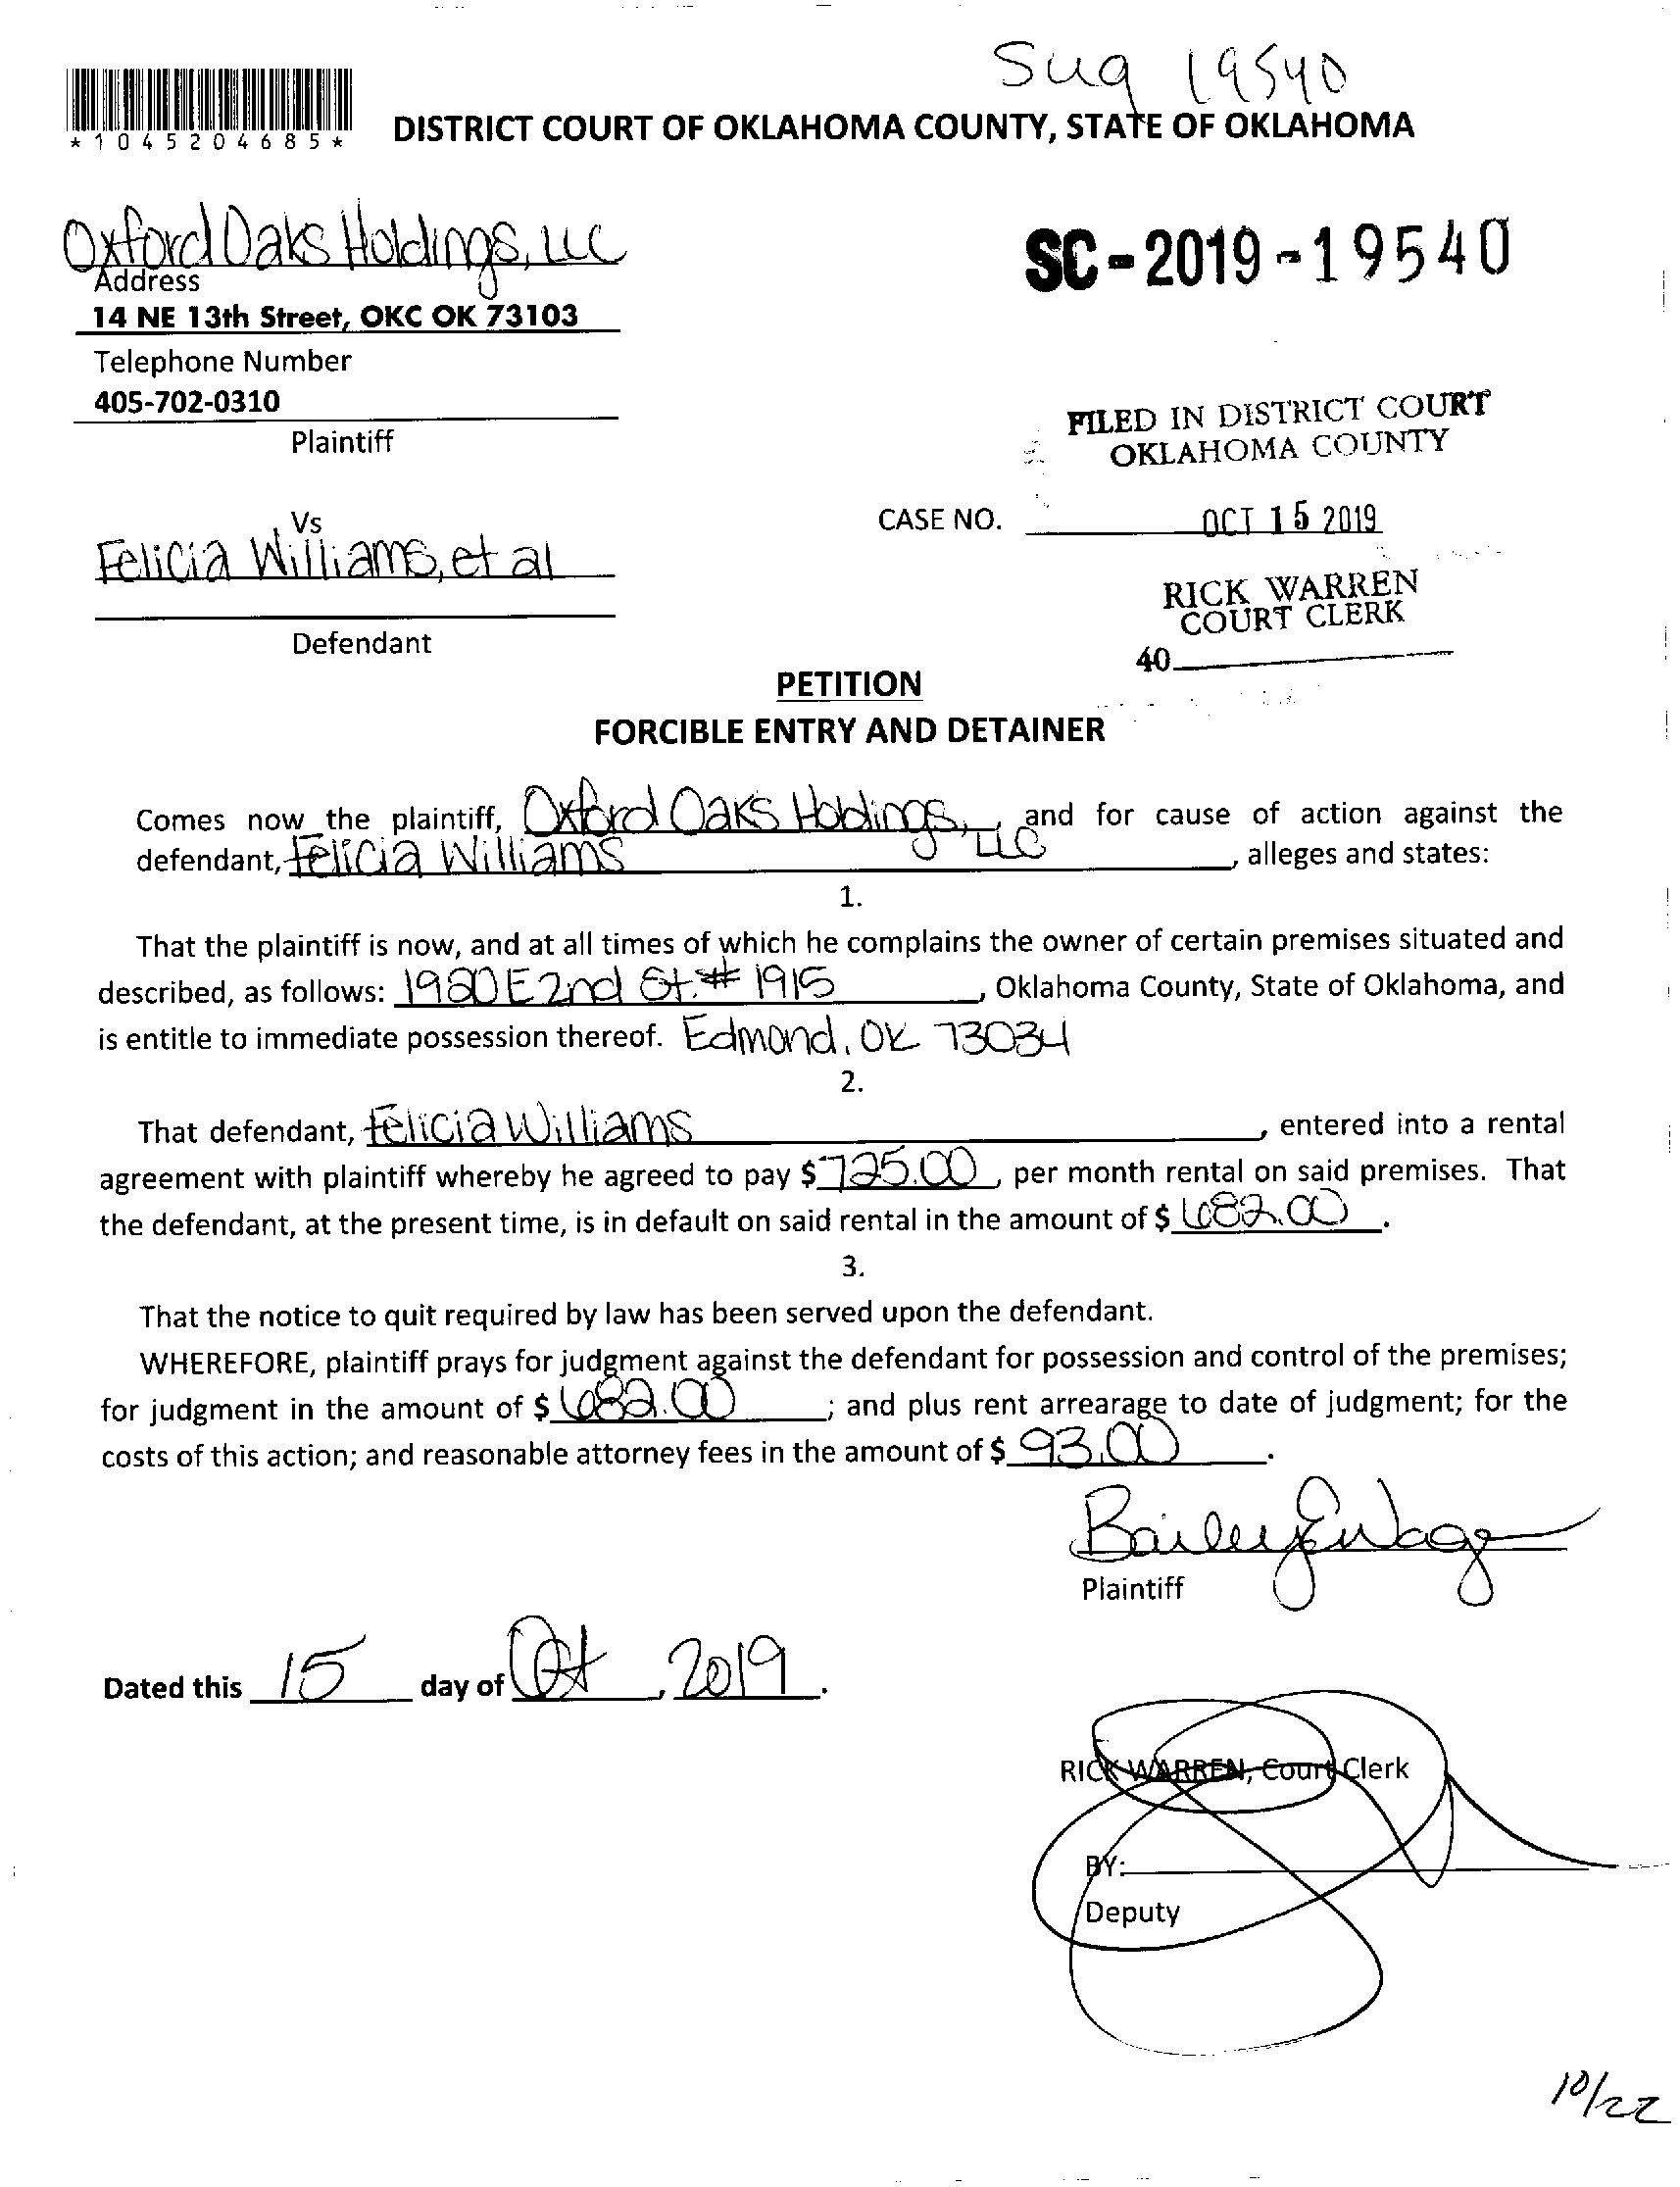 Sug 19540
*1045204685*
DISTRICT COURT OF OKLAHOMA COUNTY, STATE OF OKLAHOMA
Oxford Oaks Holdings, LLC
Address
14 NE 13th Street, OKC OK 73103
Telephone Number
405-702-0310
Plaintiff
SC-2019-19540
FILED IN DISTRICT COURT
OKLAHOMA COUNTY
Vs
Felicia Williams, et al
Defendant
CASE NO.
OCT 15 2019
RICK WARREN
COURT CLERK
40
PETITION
FORCIBLE ENTRY AND DETAINER
Comes now the plaintiff, Oxford Oaks Holdings, LLC and for cause of action against the
defendant, Felicia Williams, alleges and states:
1.
That the plaintiff is now, and at all times of which he complains the owner of certain premises situated and
described, as follows: 1920 E 2nd St. # 1915, Oklahoma County, State of Oklahoma, and
is entitle to immediate possession thereof. Edmond, OK 73034
2.
That defendant, Felicia Williams, entered into a rental
agreement with plaintiff whereby he agreed to pay $ 725.00, per month rental on said premises. That
the defendant, at the present time, is in default on said rental in the amount of $ 682.00.
3.
That the notice to quit required by law has been served upon the defendant.
WHEREFORE, plaintiff prays for judgment against the defendant for possession and control of the premises;
for judgment in the amount of $ 682.00; and plus rent arrearage to date of judgment; for the
costs of this action; and reasonable attorney fees in the amount of $ 93.00.
Plaintiff
Dated this 15 day of Oct, 2019.
RICK WARREN, Court Clerk
BY:
Deputy
10/22